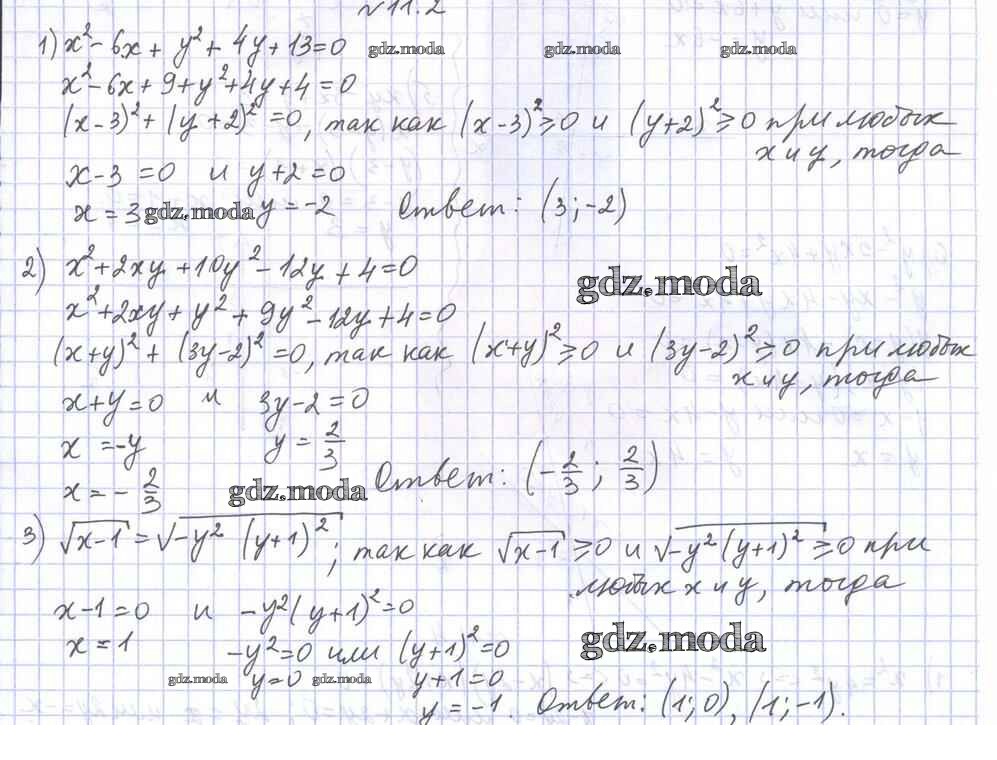 №11.2
1) x² - 6x + y² + 4y + 13 = 0 gdz.moda gdz.moda gdz.moda
x² - 6x + 9 + y² + 4y + 4 = 0
(x-3)² + (y+2)² = 0, так как (x-3)² ≥ 0 и (y+2)² ≥ 0 при любых
x и y, тогда
x-3 = 0 и y+2 = 0
x = 3 gdz.moda y = -2 Ответ: (3; -2)
2) x² + 2xy + 10y² - 12y + 4 = 0
gdz.moda
x² + 2xy + y² + 9y² - 12y + 4 = 0
(x+y)² + (3y-2)² = 0, так как (x+y)² ≥ 0 и (3y-2)² ≥ 0 при любых
x и y, тогда
x+y = 0 и 3y-2 = 0
x = -y y = 2/3
x = - 2/3 gdz.moda Ответ: (-2/3; 2/3)
3) √x-1 = √-y² (y+1)²; так как √x-1 ≥ 0 и √-y² (y+1)² ≥ 0 при
любых x и y, тогда
x-1 = 0 и -y²(y+1)² = 0
x = 1 -y² = 0 или (y+1)² = 0 gdz.moda
gdz.moda y = 0 gdz.moda y+1 = 0
y = -1. Ответ: (1; 0), (1; -1).